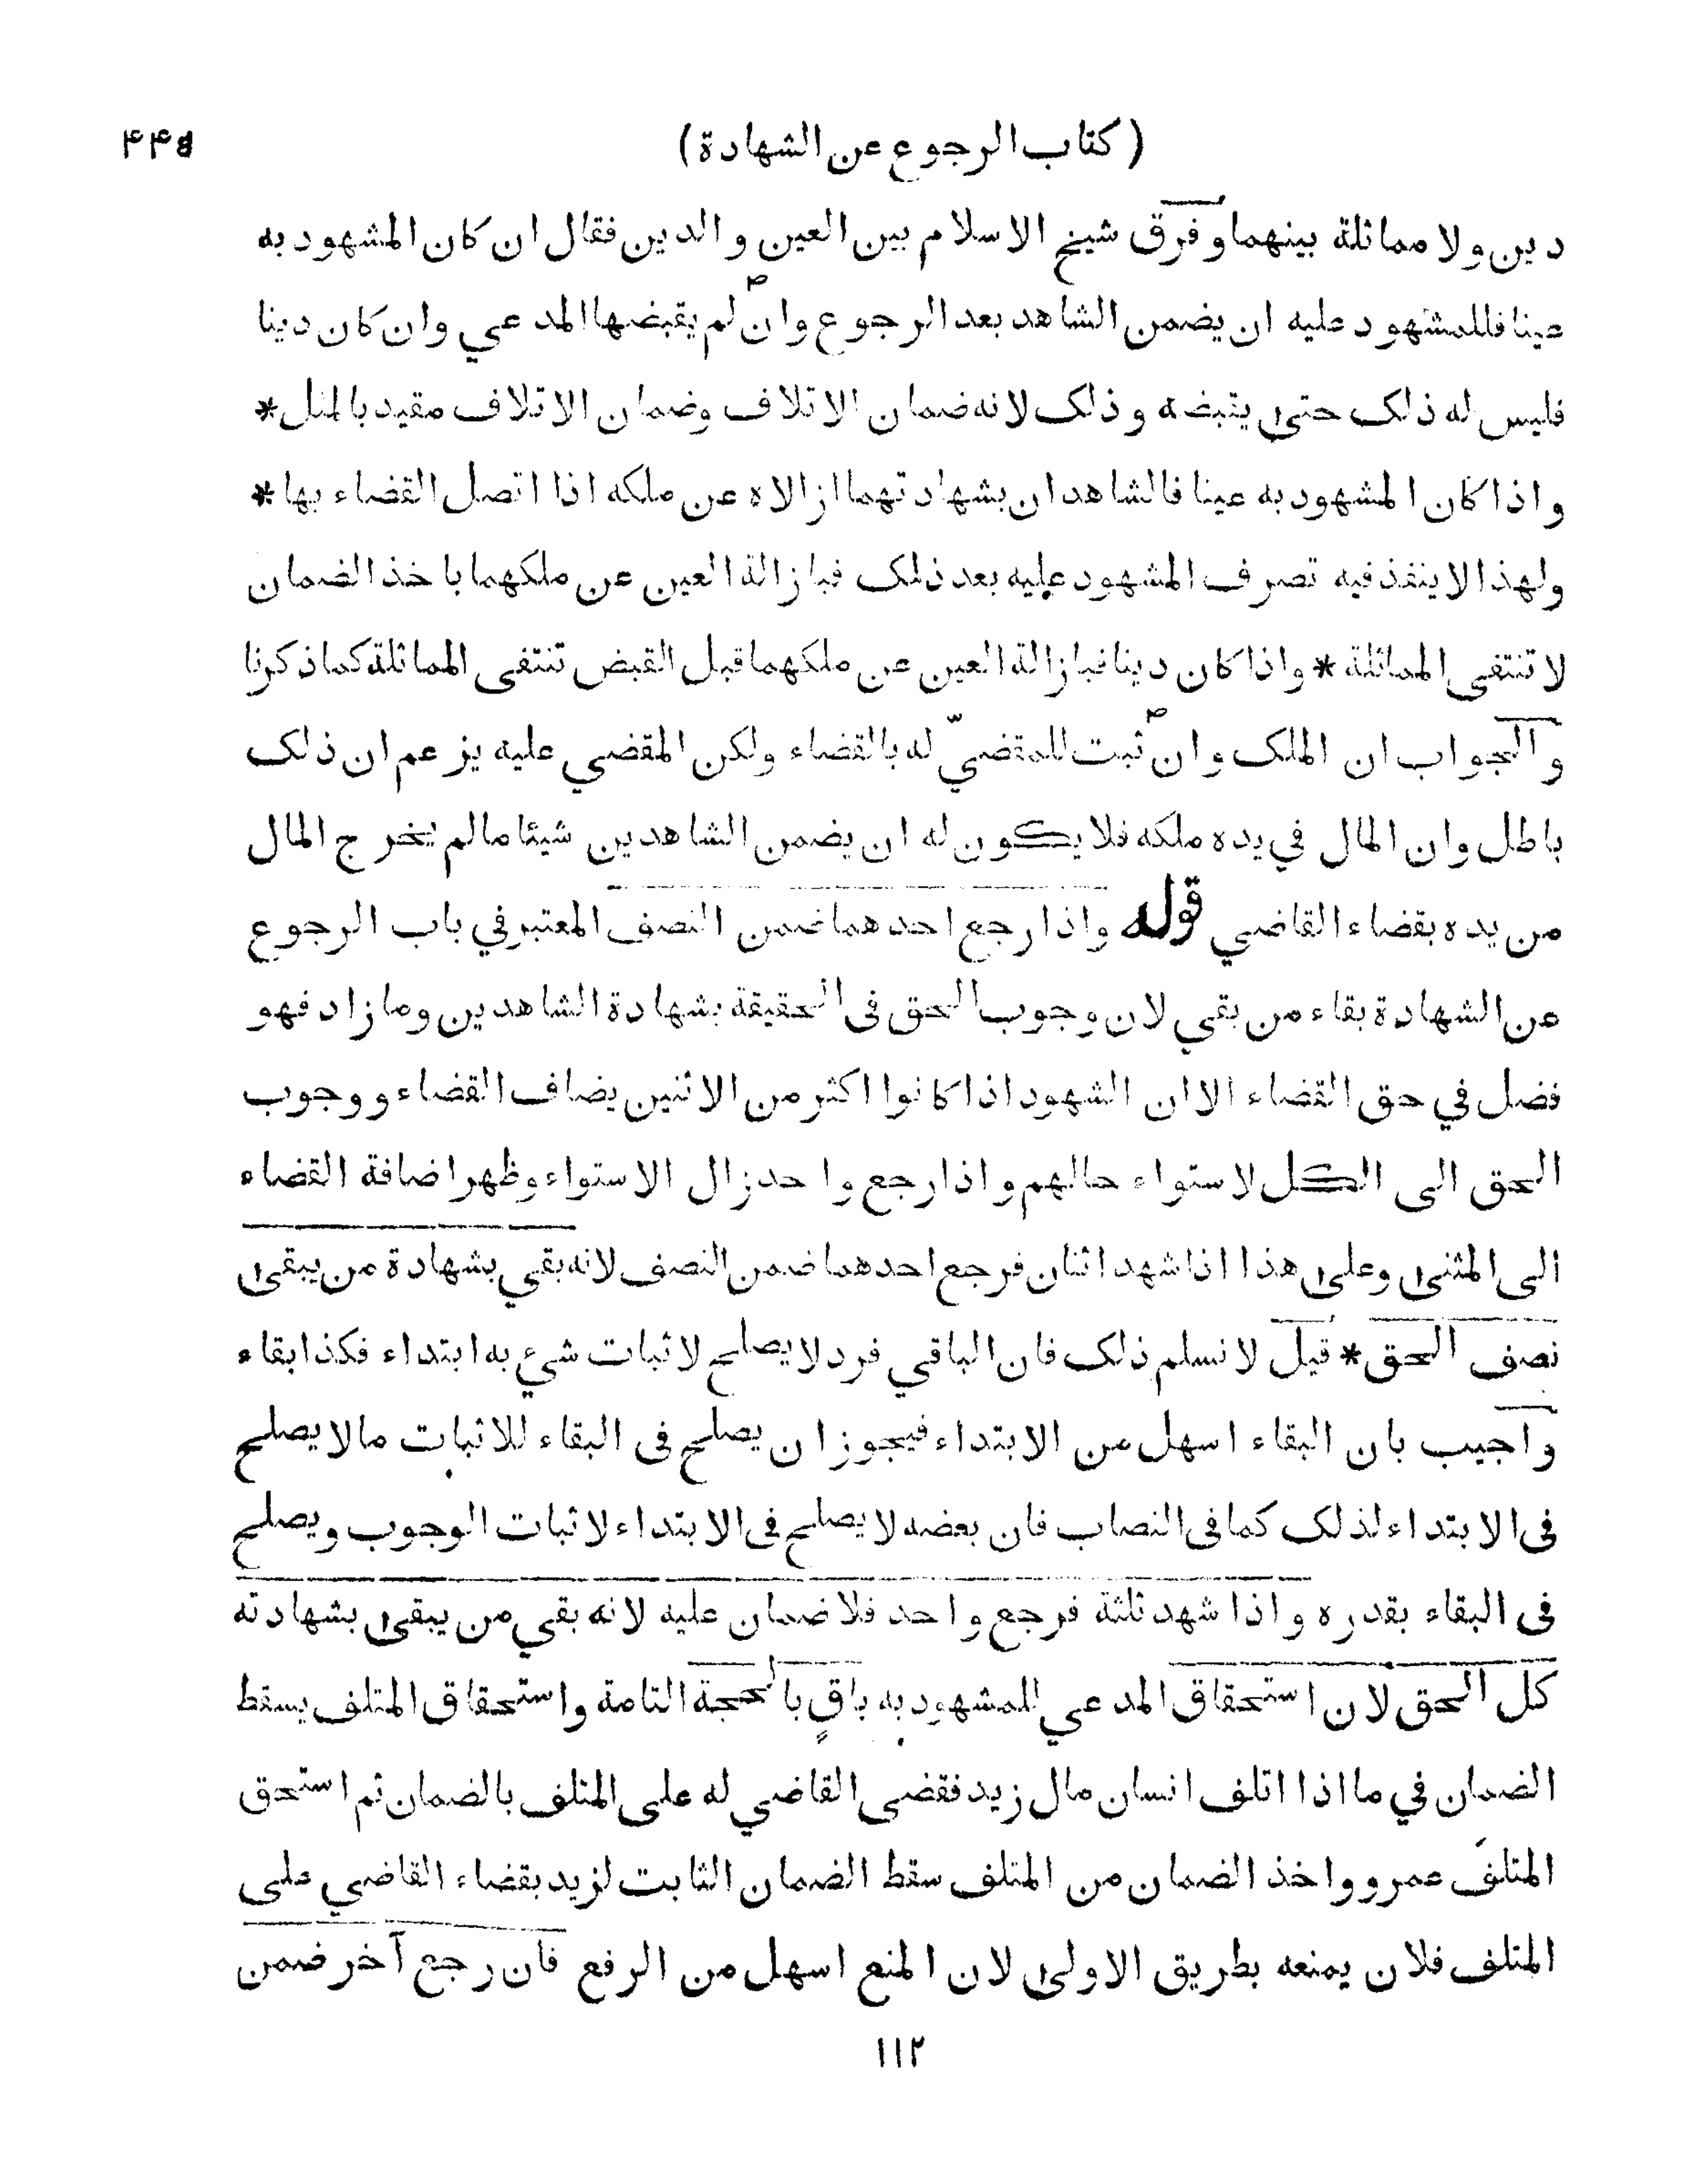 (كتاب الرجوع عن الشهادة) ۴۴۵
دين ولا مماثلة بينهما وفرق شيخ الاسلام بين العين والدين فقال ان كان المشهود به
عينا فللمشهود عليه ان يضمن الشاهد بعد الرجوع وان لم يقبضها المدعي وان كان دينا
فليس له ذلك حتى يقبضه وذلك لانه ضمان الاتلاف وضمان الاتلاف مقيد بالمثل *
واذا كان المشهود به عينا فالشاهدان بشهادتهما ازالاه عن ملكه اذا اتصل القضاء بها *
ولهذا لا ينفذ فيه تصرف المشهود عليه بعد ذلك فبازالة العين عن ملكهما باخذ الضمان
لا تنتفى المماثلة * واذا كان دينا فبازالة العين عن ملكهما قبل القبض تنتفى المماثلة كما ذكرنا
والجواب ان الملك وان ثبت للمقضيّ له بالقضاء ولكن المقضي عليه يزعم ان ذلك
باطل وان المال في يده ملكه فلا يكون له ان يضمن الشاهدين شيئا ما لم يخرج المال
من يده بقضاء القاضي قوله واذا رجع احدهما ضمن النصف المعتبر في باب الرجوع
عن الشهادة بقاء من بقي لان وجوب الحق فى الحقيقة بشهادة الشاهدين وما زاد فهو
فضل في حق القضاء الا ان الشهود اذا كانوا اكثر من الاثنين يضاف القضاء ووجوب
الحق الى الكل لاستواء حالهم واذا رجع واحد زال الاستواء وظهر اضافة القضاء
الى المثنى وعلى هذا اذا شهد اثنان فرجع احدهما ضمن النصف لانه بقي بشهادة من يبقى
نصف الحق * قيل لا نسلم ذلك فان الباقي فرد لا يصلح لاثبات شيء به ابتداء فكذا بقاء
واجيب بان البقاء اسهل من الابتداء فيجوز ان يصلح فى البقاء للاثبات ما لا يصلح
فى الابتداء لذلك كما فى النصاب فان بعضه لا يصلح فى الابتداء لاثبات الوجوب ويصلح
فى البقاء بقدره واذا شهد ثلثة فرجع واحد فلا ضمان عليه لانه بقي من يبقى بشهادته
كل الحق لان استحقاق المدعي للمشهود به باقٍ بالحجة التامة واستحقاق المتلف يسقط
الضمان في ما اذا اتلف انسان مال زيد فقضى القاضي له على المتلف بالضمان ثم استحق
المتلَف عمرو واخذ الضمان من المتلف سقط الضمان الثابت لزيد بقضاء القاضي على
المتلف فلان يمنعه بطريق الاولى لان المنع اسهل من الرفع فان رجع آخر ضمن
١١٢